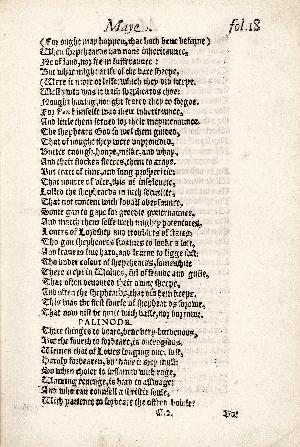 Maye. fol.18
(For ought may happen, that hath bene beforne)
When shepheards had none inheritaunce,
Ne of land, nor fee in sufferaunce:
But what might arise of the bare sheepe,
(Were it more or lesse) which they did keepe.
Well ywis was it with shepheards thoe:
Nought hauing, nought feared they to forgoe.
For Pan himselfe was their inheritaunce,
And little them serued for their mayntenaunce.
The shepheards God so wel them guided,
That of nought they were vnprouided,
Butter enough, honye, milke, and whay,
And their flockes fleeces, them to araye.
But tract of time, and long prosperitie:
That nource of vice, this of insolencie,
Lulled the shepheards in such securitie,
That not content with loyall obeysaunce,
Some gan to gape for greedie gouernaunce,
And match them selfe with mighty potentates,
Louers of Lordship and troublers of states:
Tho gan shepheards swaines to looke a loft,
And leaue to liue hard, and learne to ligge soft:
Tho vnder colour of shepeheards, somewhile
There crept in Wolues, ful of fraude and guile,
That often deuoured their owne sheepe,
And often the shepheards, that did hem keepe.
This was the first sourse of shepheards sorowe,
That now nill be quitt with baile, nor borrowe.
PALINODE.
Three thinges to beare, bene very burdenous,
But the fourth to forbeare, is outragious.
Wemen that of Loues longing once lust,
Hardly forbearen, but haue it they must:
So when choler is inflamed with rage,
Wanting reuenge, is hard to asswage:
And who can counsell a thristie soule,
With patience to forbeare the offred bowle?